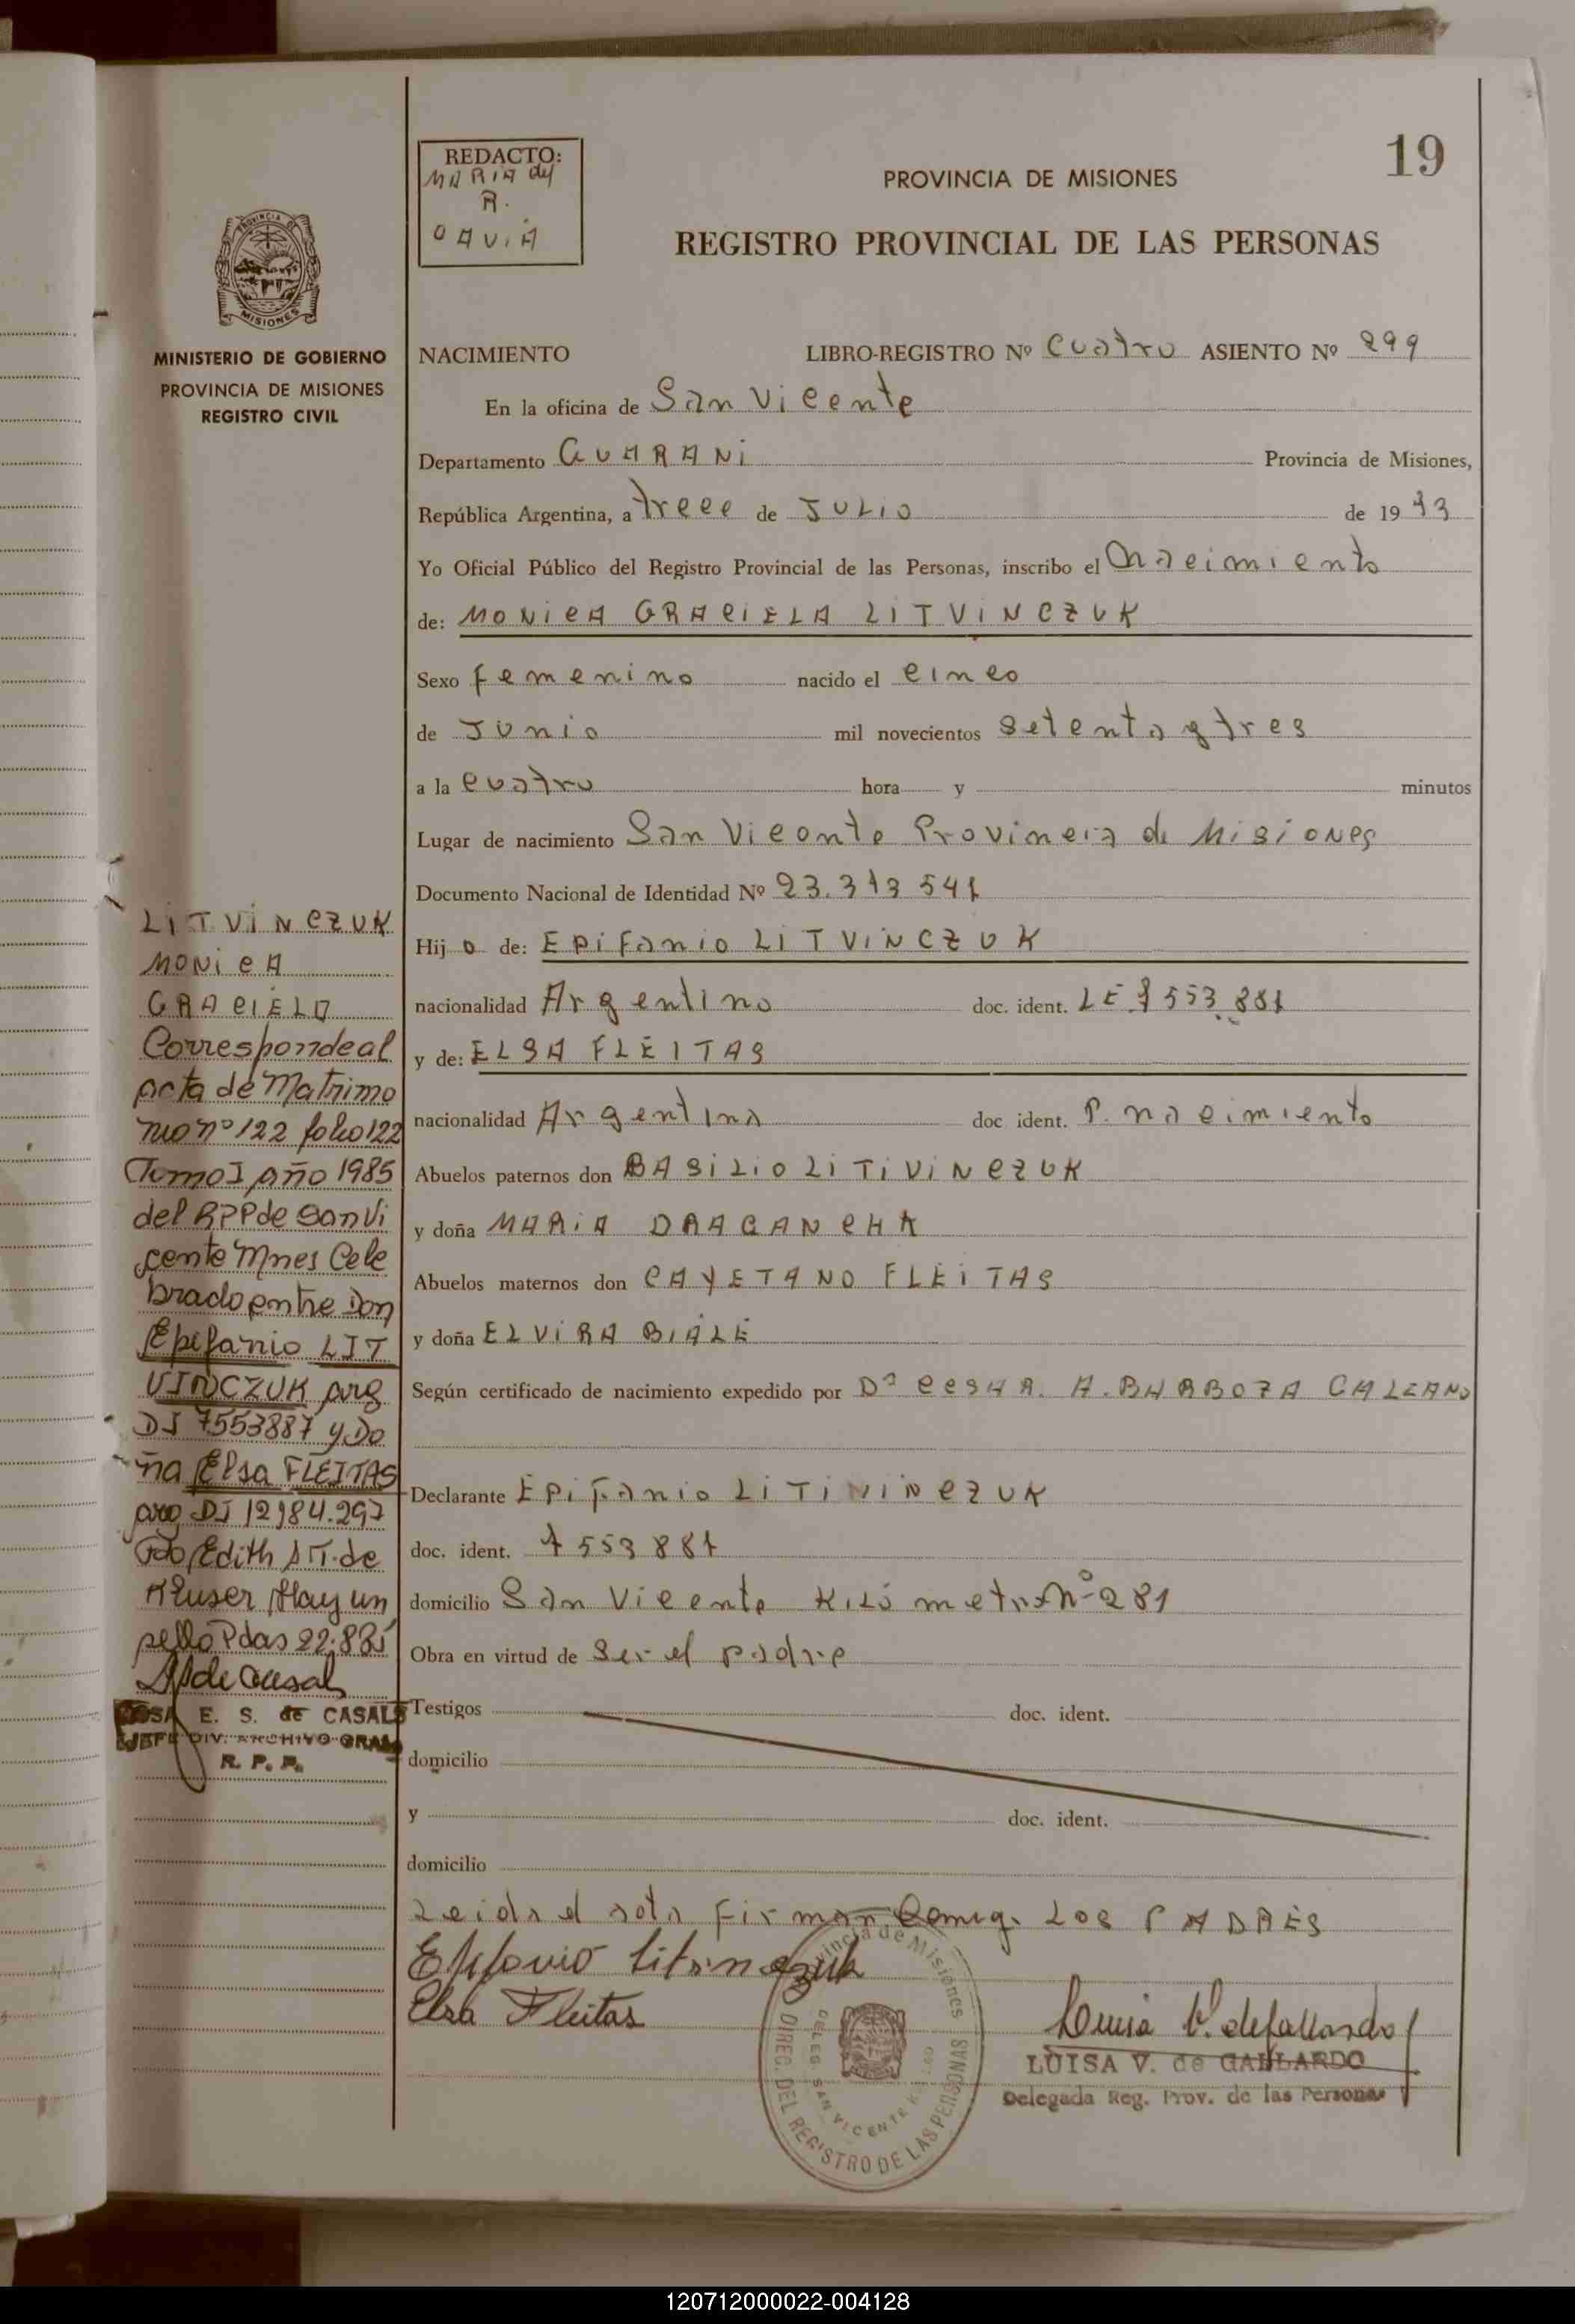 19
REDACTO:
MARIA del
R.
PROVINCIA DE MISIONES
REGISTRO PROVINCIAL DE LAS PERSONAS
PROVINCIA DE
MISIONES
MINISTERIO DE GOBIERNO
PROVINCIA DE MISIONES
REGISTRO CIVIL
NACIMIENTO LIBRO-REGISTRO Nº Cuatro ASIENTO Nº 299
En la oficina de San Vicente
Departamento GUARANI Provincia de Misiones,
República Argentina, a trece de JULIO de 19 73
Yo Oficial Público del Registro Provincial de las Personas, inscribo el nacimiento
de: MONICA GRACIELA LITVINCZUK
Sexo femenino nacido el cinco
de Junio mil novecientos setenta y tres
a la cuatro hora y minutos
Lugar de nacimiento San Vicente Provincia de Misiones
Documento Nacional de Identidad Nº 23.313 547
Hij o de: EPiFanio LITVINCZUK
nacionalidad Argentino doc. ident. LE 7 553 887
y de: ELSA FLEITAS
nacionalidad Argentina doc. ident. P. nacimiento
Abuelos paternos don BASILIO LITIVINCZUK
y doña MARIA
Abuelos maternos don CAYETANO FLEITAS
y doña ELVIRA
Según certificado de nacimiento expedido por Dº CESAR. A. BARBOZA GALEANO
Declarante EPiFanio LITIVINCZUK
doc. ident. 7 553 887
domicilio San Vicente Kiló metro Nº 281
Obra en virtud de Ser el padre
Testigos doc. ident.
domicilio
y doc. ident.
domicilio
Leida el acta Firman Comig. LOS PADRES
Epifanio
Elsa Fleitas
Luisa V. de Gallardo
LUISA V. de GALLARDO
Delegada Reg. Prov. de las Personas
Provincia de Misiones
DIREC. DEL REGISTRO DE LAS PERSONAS
DELEG. SAN VICENTE
LITVINCZUK
MONICA
GRACIELA
Corresponde al
acta de Matrimo
nio nº 122 folio 122
Tomo I año 1985
del RPP de San Vi
cente Mnes Cele
brado entre Don
Epifanio LIT
VINCZUK arg
DI 7553887 y Do
ña Elsa FLEITAS
arg DI 12984.297
Fdo Edith de
Hay un
sello Pdas
ROSA E. S. de CASALS
JEFE DIV. ARCHIVO GRAL
R. P. P.
120712000022-004128